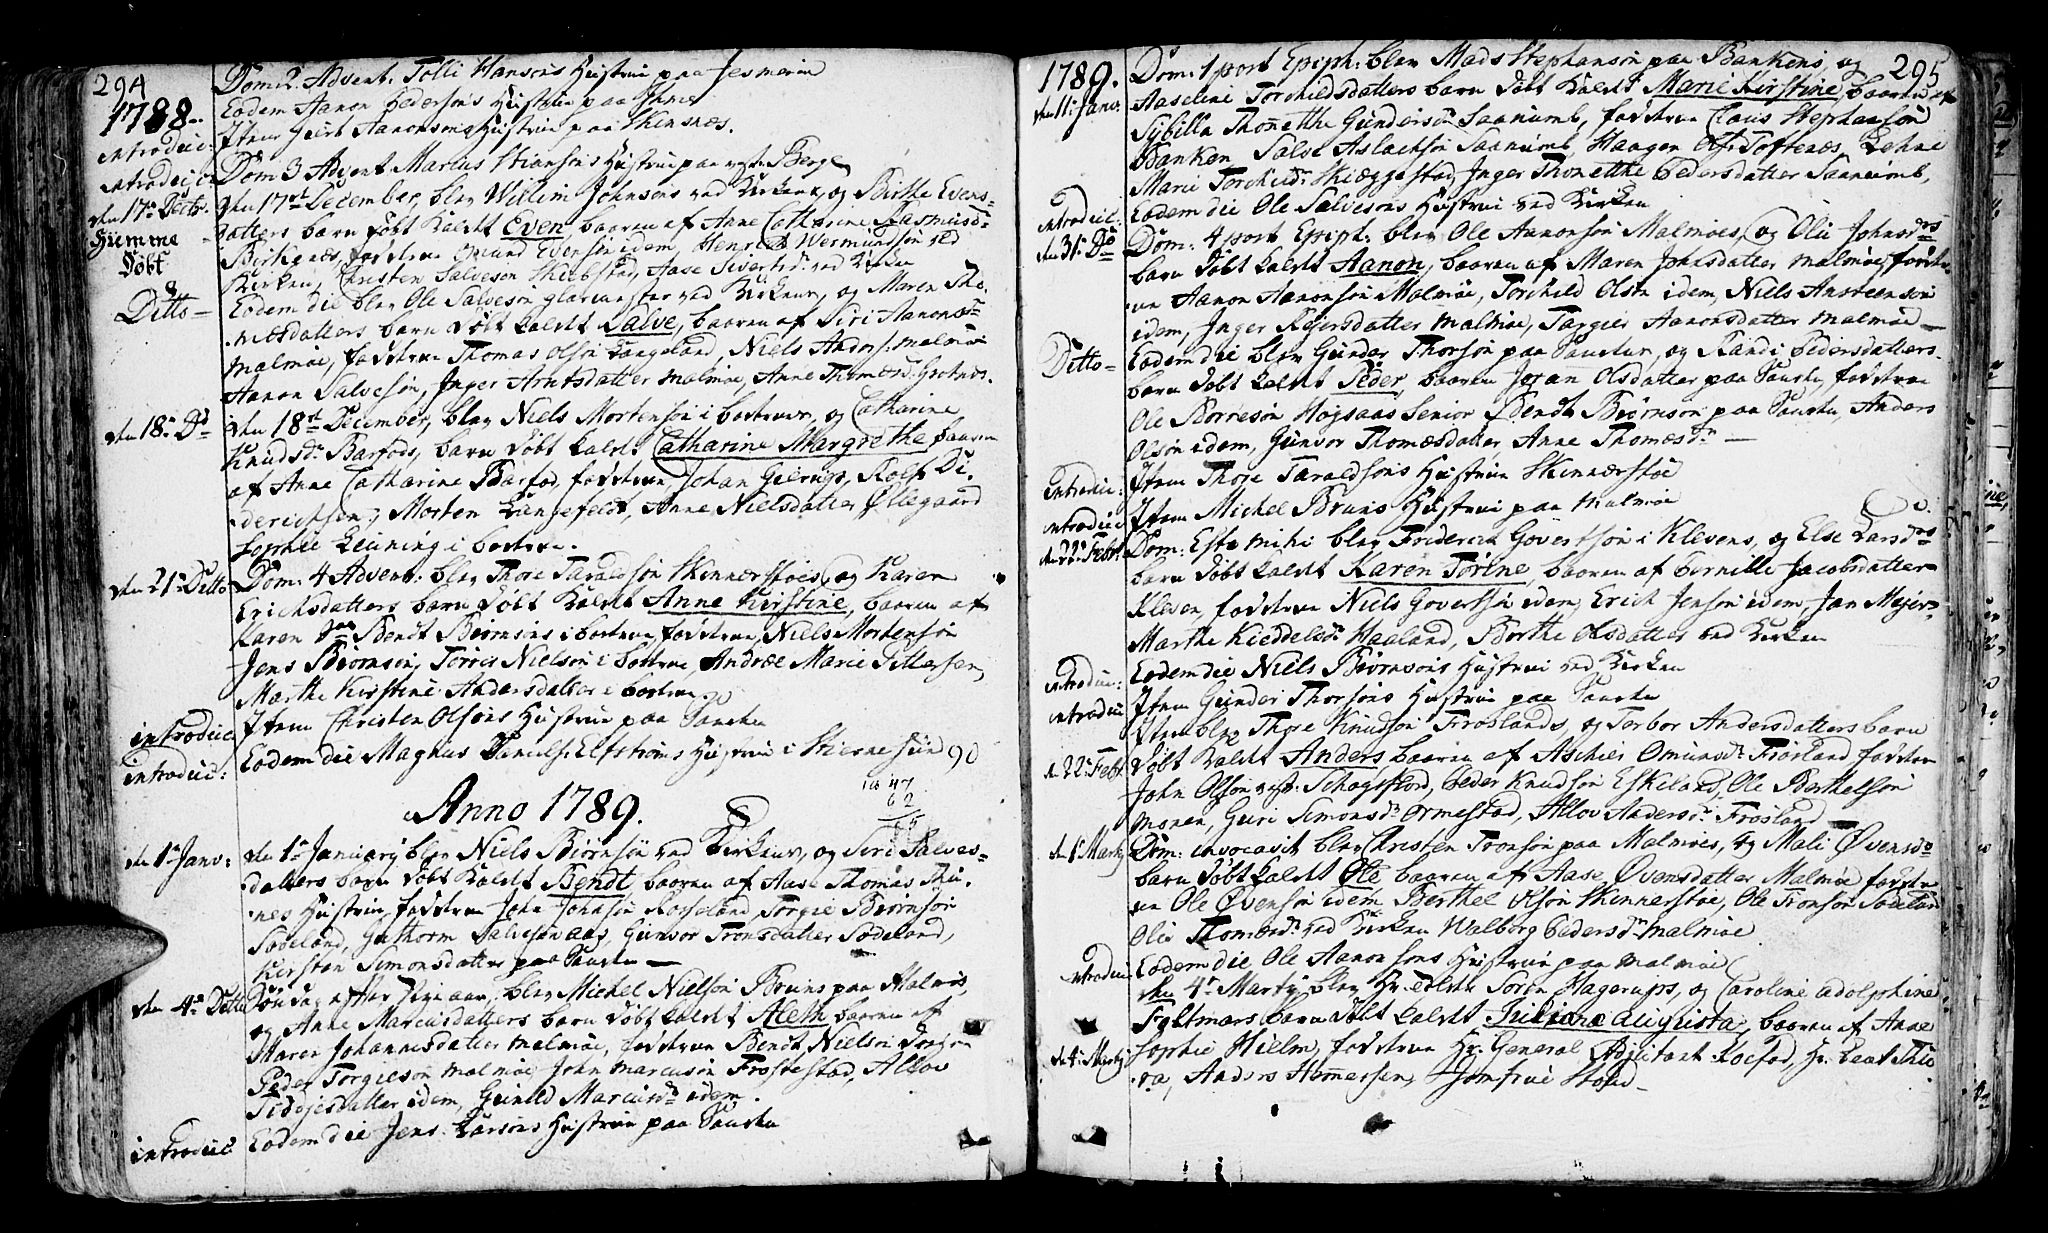 294
1788.
Dom: 2. Advent. Tolli Hansons Hustrue paa Jesmerin
Eodem Aanon Pedersøns Hustrue paa Ihme
introduc: Item Geirt Aanonsens Hustrue paa Skinsnæs.
introduc: Dom 3 Advent Marcus Stiansøns Hustrue paa Berge
den 17de Decbr. den 17de December, blev Willum Johnsons ved Kirken, og Birthe Evens-
Hiemme datters barn døbt kaldt Even, baaren af Anne Catharine Rasmusd:
Døbt Birkenæs, faddere Omund Evensøn idem, Henrich Wermundsøn ved
Kirken, Christen Salvesøn Skiebstad, Aase Sivertsd: ved Kirken
Ditto - Eodem die blev Ole Salvesøn glarmester ved Kirken, og Maren Tho-
mæsdatters barn døbt kaldt Salve, baaren af Siri Aanonsd:
Malmøe, faddere Thomas Olsøn Haageland, Niels Anders: Malmøe
Aanon Salvesøn, Inger Arntsdatter Malmøe, Anne Thomæsd: Grotnæs.
den 18de Do den 18de December, blev Niels Mortensøn i bostrue, og Catharine
Knudsdr Barfods, barn døbt kaldt Catharine Margrethe baaren
af Anne Catharine Barfod, faddere Johan Gierup, Roels Di-
derichsen, Morten Langefeldt, Anne Nielsdatter Øllegaard
Sophie Leuning i bostrue.
den 21de Ditto Dom: 4 Advent: blev Thore Taraldsøn Skinnerstøes og Karen
Erichsdatters barn døbt kaldt Anne Kirstine, baaren af
Karen Bendt Biørnsøns i bostrue, faddere, Niels Mortensøn
Jens Biørnsen, Torris Nielsøn i bostrue, Andræe Marie Pettersen,
Marthe Kirstine Andersdatter i bostrue
introduc Item Christen Olsøns Hustrue paa Sanden
introduc: Eodem die Magnus Danielsr Elfstrøms Hustrue i Stiernesund 90
47
62
Anno 1789.
den 1de Janv: den 1de January blev Niels Biørnsøn ved Kirken, og Siri Salves-
datters barn døbt kaldt Bendt, baaren af Aase Thomas Thu-
nes Hustrue, faddere John Johnsøn Rosseland, Torgie Biørnsøn
Sodeland, Guthorm Salvesøn Aas, Gunvor Tronsdatter Sodeland,
Kirsten Simonsdatter paa Sanden
den 4de Ditto Søndag efter Nyeaar, blev Michel Nielsøn Bruns paa Malmøe,
og Anne Marcusdatters barn døbt kaldt Aleth baaren af
Maren Johannesdatter Malmøe, faddere Bendt Nielsøn
Peder Torgiesøn Malmøe, John Marcusøn Frostestad, Allov
Siddiesdatter idem, Gunild Marcusdr idem.
introduc Eodem die Jens Larsøns Hustrue paa Sanden
295
1789.
den 11te Janv: Dom: 1 post Epiph: blev Mads Stephansøn paa Bankens, og
Aaseline Torchildsdatters barn døbt kaldt Marie Kirstine, baaren af
Sybilla Thonnethe Gundersdr Saanumb, faddere Claus Stephansøn
Banken Salve Aslachsøn Saanumb, Haagen Ols: Toftenæs, Lehne
Marie Torchildsdr Skieggestad, Inger Thonethe Pedersdatter Saanumb,
introduc: Eodem die Ole Salvesøns Hustrue ved Kirken
den 31te Do Dom: 4 post Epiph: blev Ole Aanonsøn Malmøes, og Olu Johnsdrs
barn døbt kaldt Aanon, baaren af Maren Johnsdatter Malmøe, fadde-
re Aanon Aanonsøn Malmøe, Torchild Olsøn idem, Niels Ansteensøn
idem, Inger Reiersdatter Malmøe, Targier Aanonsdatter Malmøe
Ditto - Eodem die blev Gunder Thorsøn paa Sanden, og Randi Pedersdatters
barn døbt kaldt Peder, baaren Joran Olsdatter paa Sanden, faddere
Ole Børresøn Høgsaas Senior Bendt Biørnsøn paa Sanden, Anders
Olsøn idem, Gunvor Thomæsdatter, Anne Thomæsdr
introduc: Item Thore Taraldsøns Hustrue Skinnerstøe
introduc Item Michel Bruns Hustrue paa Malmøe
den 22de Febr. Dom: Esto mihi blev Friderich Govertsøn i Klevens, og Else Larsdrs
barn døbt kaldt Karen Torine, baaren af Pernille Jacobsdatter
Kleven, faddere Niels Govertsøn idem, Erich Jensøn idem Jan Mejer
Marthe Kieddelsdr Haaland, Berthe Olsdatter ved Kirken
introduc: Eodem die Niels Biørnsøns Hustrue ved Kirken
introduc Item Gunder Thorsøns Hustrue paa Sanden
Item blev Thore Knudsøn Frøslands, og Torbor Andersdatters barn
d 22de Febr døbt kaldt Anders baaren af Aschier Omunsdr Frøsland faddere
John Olsøn Schogsfiord, Peder Knudsøn Eskeland, Ole Berthelsøn
Monen, Guri Simonsdr Ormestad, Allov Andersdr Frøsland
den 1te Marty Dom: invocavit blev Christen Tronsøn paa Malmøes, og Mali Øvensdrs
barn døbt kaldt Ole baaren af Aase Øvensdatter Malmøe fadde-
re Ole Øvensøn idem Berthel Olsøn Skinnerstøe, Ole Tronsøn Sodeland
Olu Thomæsdr ved Kirken Walborg Pedersdr Malmøe
introduc Eodem die Ole Aanonsøns Hustrue paa Malmøe
den 4de Marty blev Hr. Søren Hagerups, og Caroline Adolphine
Feltmans barn døbt kaldt Juliana Augusta, baaren af Anne
d: 4de Marty Sophie Hielm, faddere Hr: General Adjutant Koefod, Hr:
Anders Homersen, Jomfrue Stoud